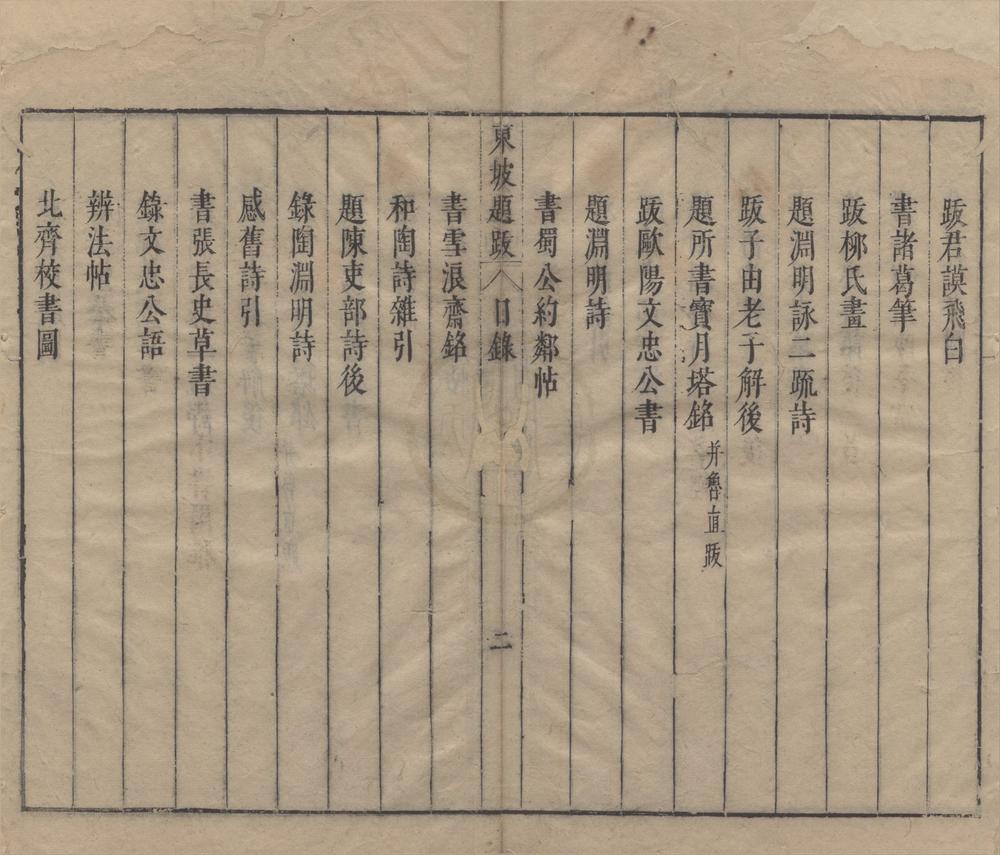 跋君謨飛白
書諸葛筆
跋柳氏畫
題淵明詠二疏詩
跋子由老子解後
題所書寶月塔銘 并魯直跋
跋歐陽文忠公書
題淵明詩
書蜀公約鄰帖
東坡題跋 目錄 二
書雪浪齋銘
和陶詩雜引
題陳吏部詩後
錄陶淵明詩
感舊詩引
書張長史草書
錄文忠公語
辨法帖
北齊校書圖